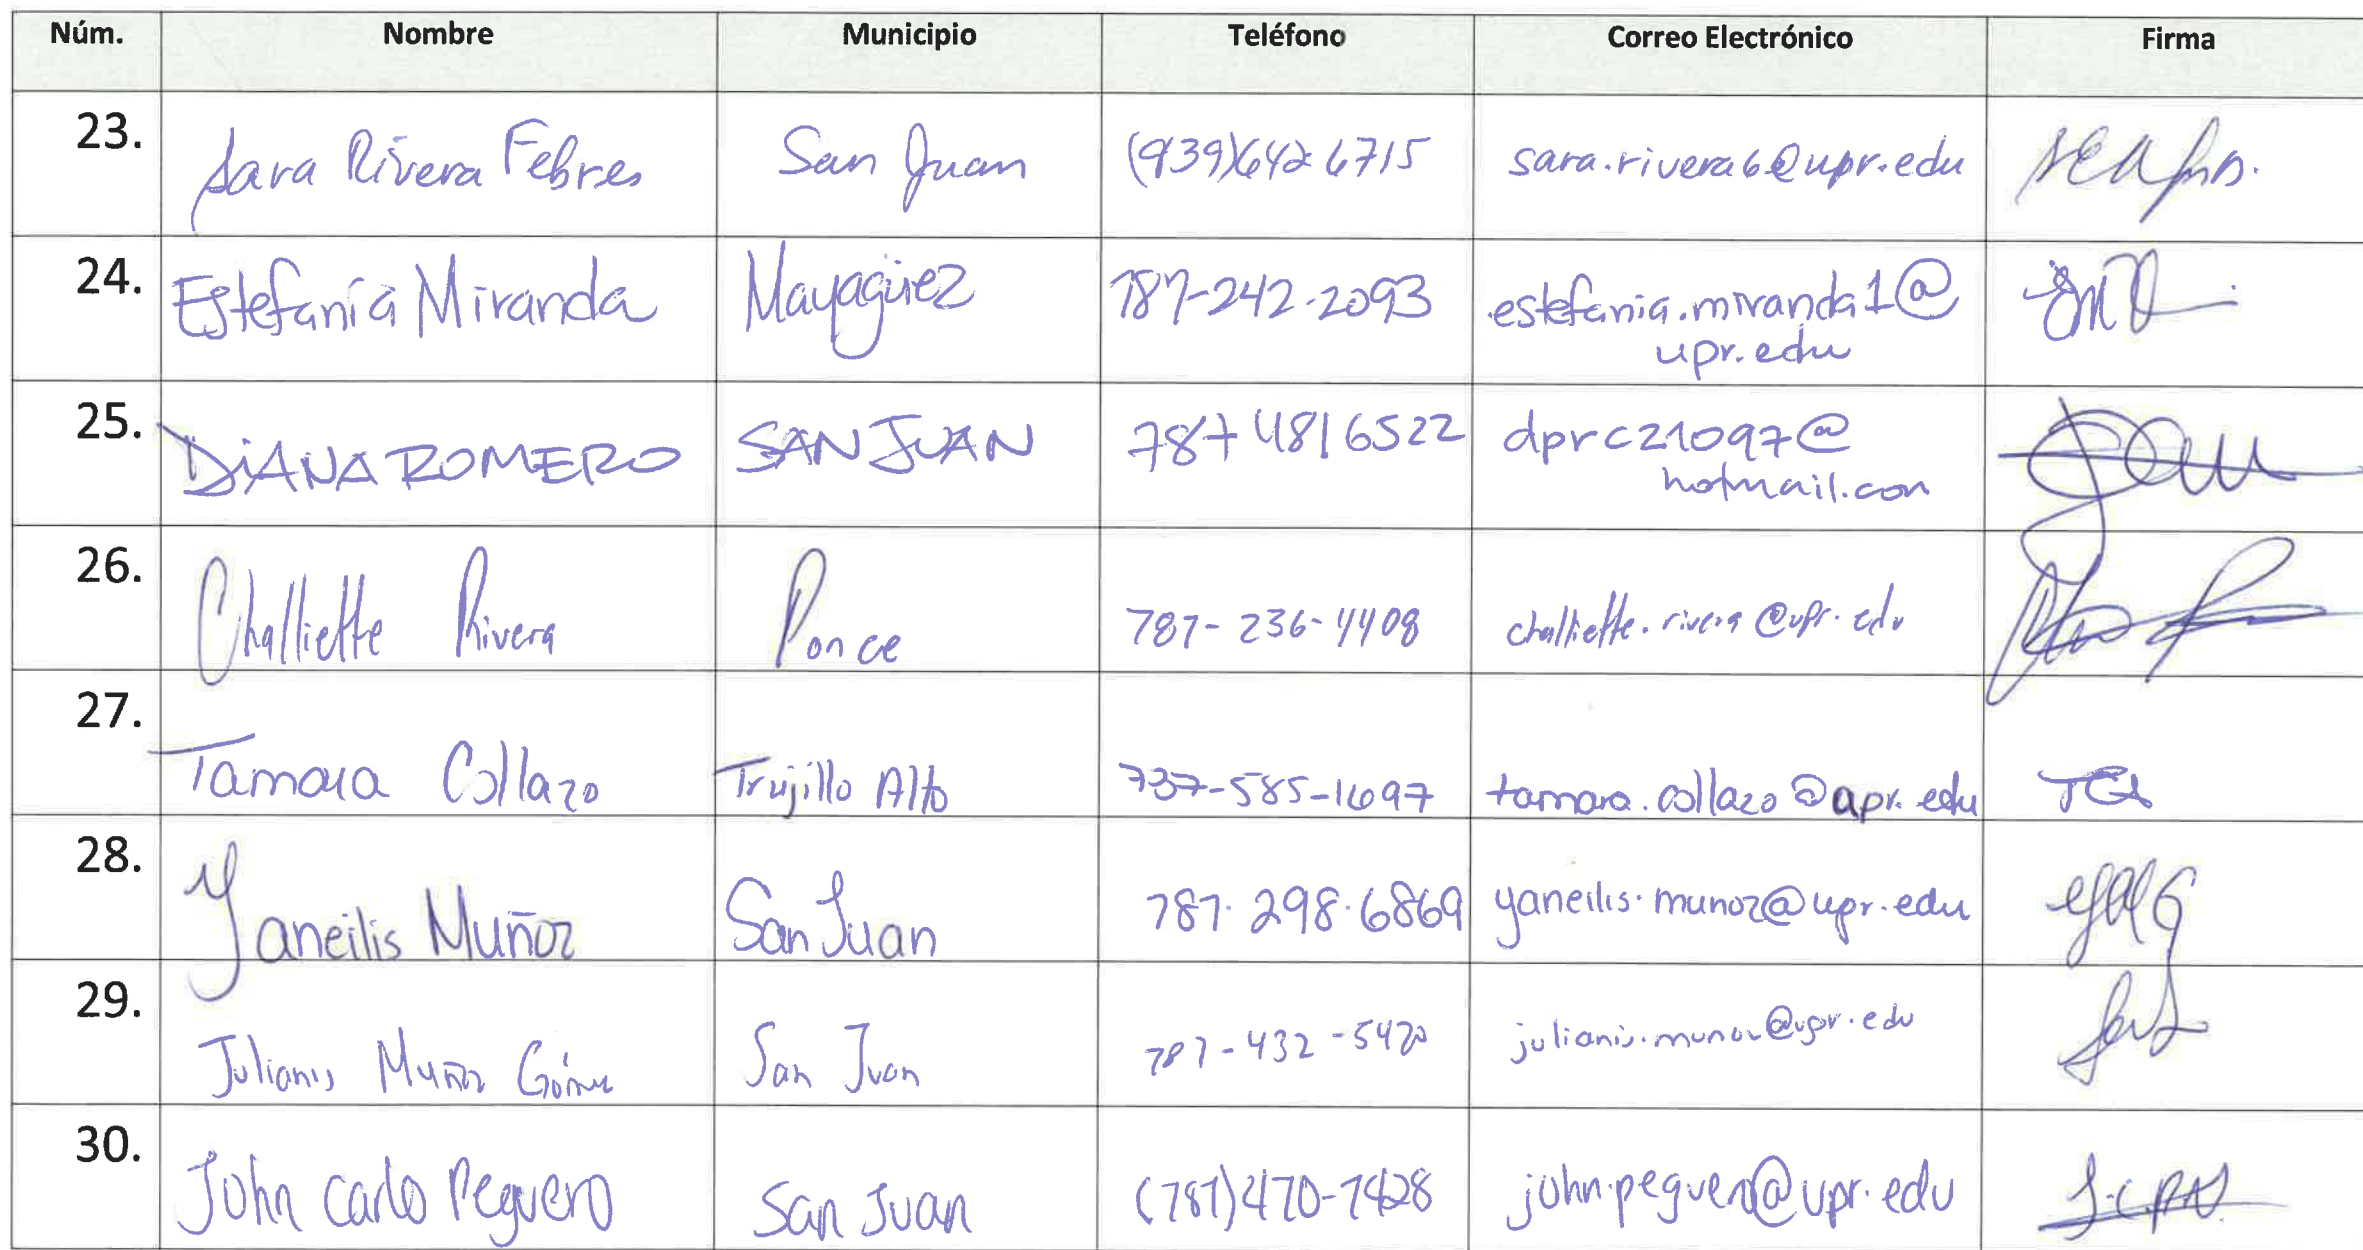 Núm. Nombre Municipio Teléfono Correo Electrónico Firma
23. Sara Rivera Febres San Juan (939)642 6715 sara.rivera6@upr.edu
24. Estefanía Miranda Mayagüez 787-242-2093 estefania.miranda1@
upr.edu
25. DIANA ROMERO SAN JUAN 787 481 6522 dprc21097@
hotmail.com
26. Challiette Rivera Ponce 787-236-4408 challiette.rivera@upr.edu
27. Tamara Collazo Trujillo Alto 787-585-1697 tamara.collazo@upr.edu
28. Yaneilis Muñoz San Juan 787.298.6869 yaneilis.munoz@upr.edu
29. Julianis Muñoz Gómez San Juan 787-432-5470 julianis.munoz@upr.edu
30. John Carlo Peguero San Juan (787)470-7428 john.peguero@upr.edu